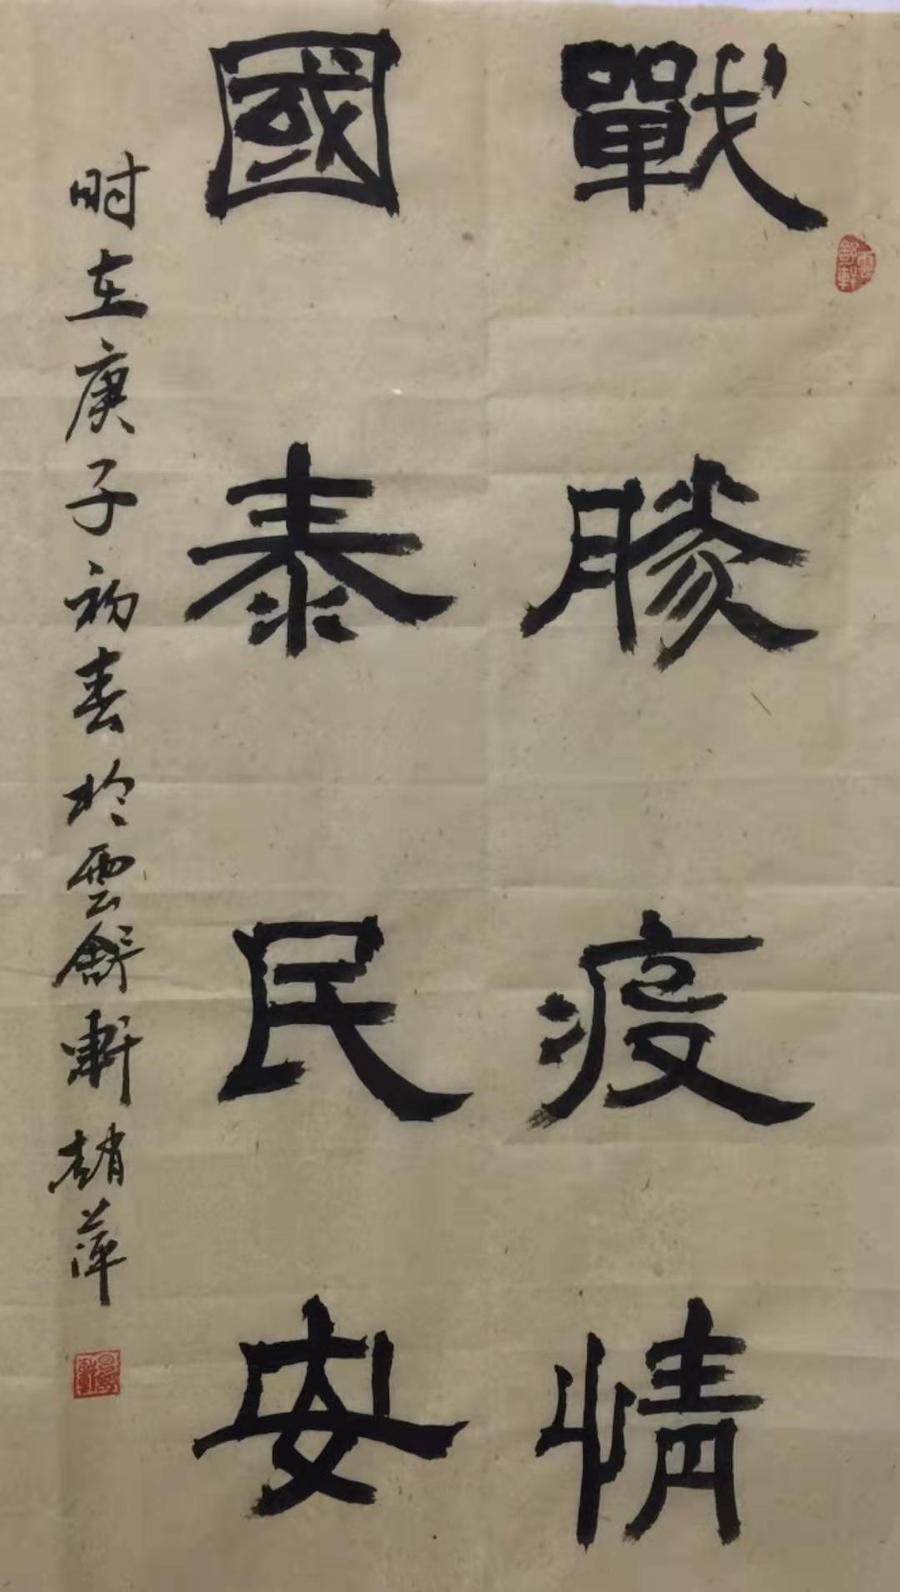 戰勝疫情
國泰民安
时在庚子初春於雲舒軒趙萍